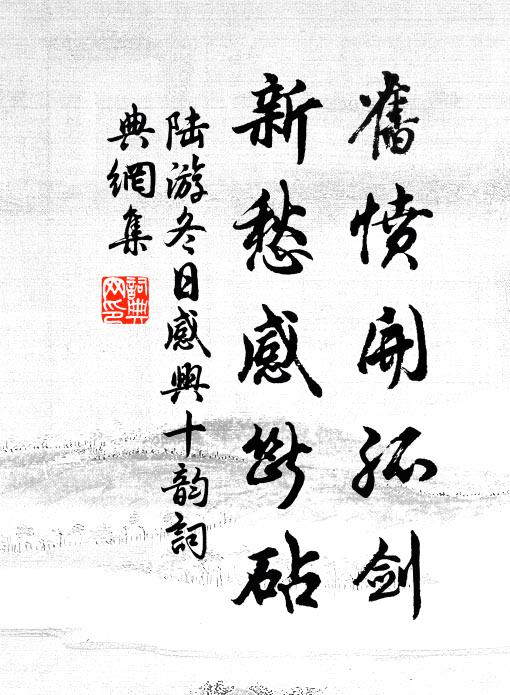 舊憤開孤劍
新愁感斷砧
陆游冬日感興十韵詞
典網集
詞典
网印